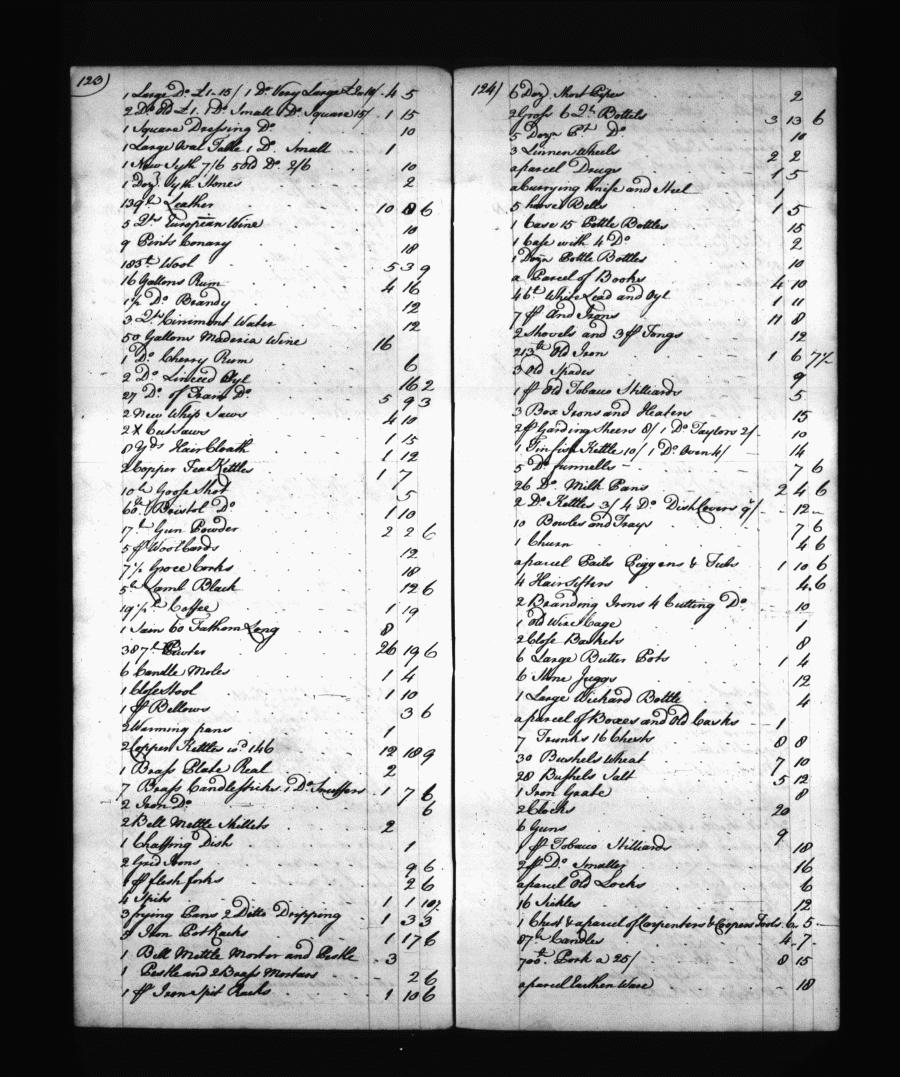 123)
1 Large Do £1-15/ 1 Do Very Large £2-10/ . 4 5
2 Do Old £1. 1 Do Small 1 Do Square 15/ . 1 15
1 Square Dressing Do . 10
1 Large Oval Table 1 Do Small 1
1 New Syth 7/6 5 Old Do 2/6 10
1 Dozn Syth Stones . 2
139 lb Leather . 10 8 6
5 Qts European Wine 10
9 Pints Canary 18
183 lb Wool 5 3 9
16 Gallons Rum 4 16
1 1/2 Do Brandy 12
3 Qts Cinimont Water 12
50 Gallons Maderia Wine 16
1 Do Cherry Rum 6
2 Do Linseed Oyl 16 2
27 Do of Train Do 5 9 3
2 new Whip Saws 4 10
2 X Cut Saws 1 15
8 Yds Hair Cloath 1 12
2 Copper Tea Kettles 1 7
10 lb Goose Shot 5
60 lb Bristol Do 1 10
17 lb Gun Powder 2 2 6
5 pr Wool Cards 12
7 1/2 Groce Corks 18
5 lb Lamb Black 12 6
19 1/2 lb Coffee 1 19
1 Sain 60 Fathom Long 8
387 lb Pewter 26 19 6
6 Candle Moles 1 4
1 Close Stool 1 10
1 pr Bellows 3 6
2 Warming pans 1
2 Copper Kettles wo 146 12 18 9
1 Brass Plate Real 2
7 Brass Candlesticks. 1 Do Snuffers . 1 7 6
2 Iron Do 6
2 Bell Mettle Skillets 2
1 Chaffing Dish 1
2 Grid Irons 9 6
1 pr flesh forks 2 6
4 Spits 1 1 10 1/2
3 frying Pans 2 Ditto Dripping 1 3 3
5 Iron Pot Racks 1 17 6
1 Bell Mettle Mortor and Pestle 3
1 Pestle and 2 Brass Mortars 2 6
1 pr Iron Spit Racks 1 10 6
124)
6 Dozn Short Pipes 2
2 Gross 6 Qt Bottels 3 13 6
5 Dozn Pt Do 10
3 Linnen Wheels 2 2
a parcel Drugs 1 5
a Currying Knife and Steel 1
5 horse Bells 1 5
1 Case 15 Pottle Bottles 15
1 Case with 4 Do 2
1 Dozn Pottle Bottles 10
a Parcel of Books 4 10
46 lb White Lead and Oyl 1 11
7 pr And Irons 11 8
2 Shovels and 3 pr Tongs 12
213 lb Old Iron 1 6 7 1/2
3 Old Spades 9
1 pr Old Tobaco Stilliards 5
3 Box Irons and Heaters 15
2 pr Garding Sheers 8/ 1 Do Taylors 2/ 10
1 Tin fish Kettle 10/ 1 Do Oven 4/ 14
5 Do funnells 7 6
26 Do Milk Pans 2 4 6
2 Do Kettles 3/ 4 Do Dish Covers 9/ 12
10 Bowles and Trays 7 6
1 Churn 4 6
a parcel Pails Piggens & Tubs 1 10 6
4 Hair Sifters 4.6
2 Branding Irons 4 Cutting Do 10
1 Old Wire Cage 1
2 Close Baskets 8
6 Large Butter Pots 1 4
6 Stone Juggs 12
1 Large Wickard Bottle 4
a parcel of Boxes and Old Casks 1
7 Trunks 16 Chests 8 8
30 Bushels Wheat 7 10
28 Bushels Salt 5 12
1 Iron Grate 8
2 Clocks 20
6 Guns 9
1 pr Tobaco Stilliards 18
2 pr Do Smaller 16
a parcel Old Locks 6
16 Sickles 12
1 Chest & a parcel of Carpenters & Coopers Tools . 6 . 5
87 lb Candles 4 . 7
700 lb Pork a 25/ 8 15
a parcel Earthen Ware 18